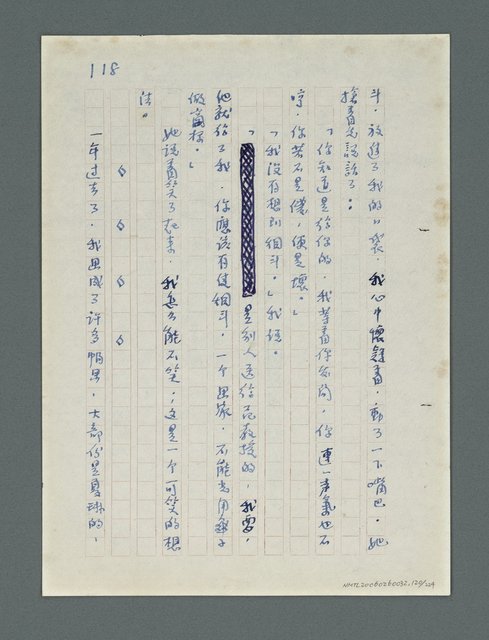 118
斗，放進了我的口袋。我心中懷疑着，動了一下嘴巴。她
搶着先說話了：
「你知道是給你的，我等着你發問，你連一声氣也不
哼，你若不是儍，便是壞。」
「我沒有想到烟斗。」我說。
「是別人送給范教授的，我要，
他就給了我，你應該有隻烟斗，一个畫家，不能老用
做窗格。」
她說着笑了起來，我怎么能不笑，這是一个可笑的想
法。
一年过去了，我畫成了許多幅畫，大部份是夏琳的，
NMTL20060260032,120/224